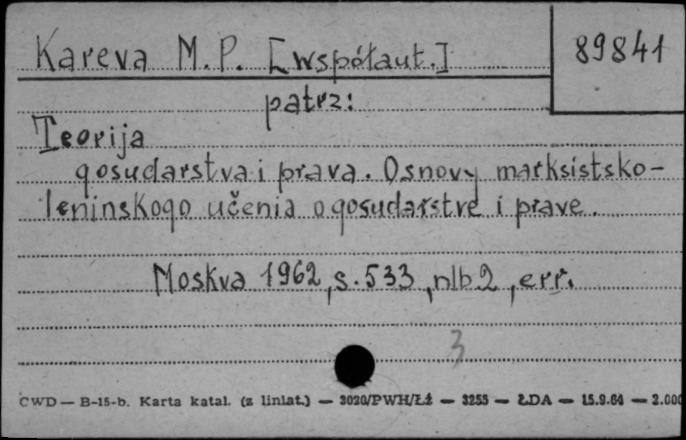 Kareva M. P. [współaut.]
89841
patrz:
Teorija
gosudarstva i prava. Osnovy marksistsko-
leninskogo učenia o gosudarstve i prave.
Moskva 1962, s. 533, nlb 2, err.
3
CWD — B-15-b. Karta katal. (z liniat.) — 3020/PWH/Łź — 3255 — ŁDA — 15.9.64 — 2.000